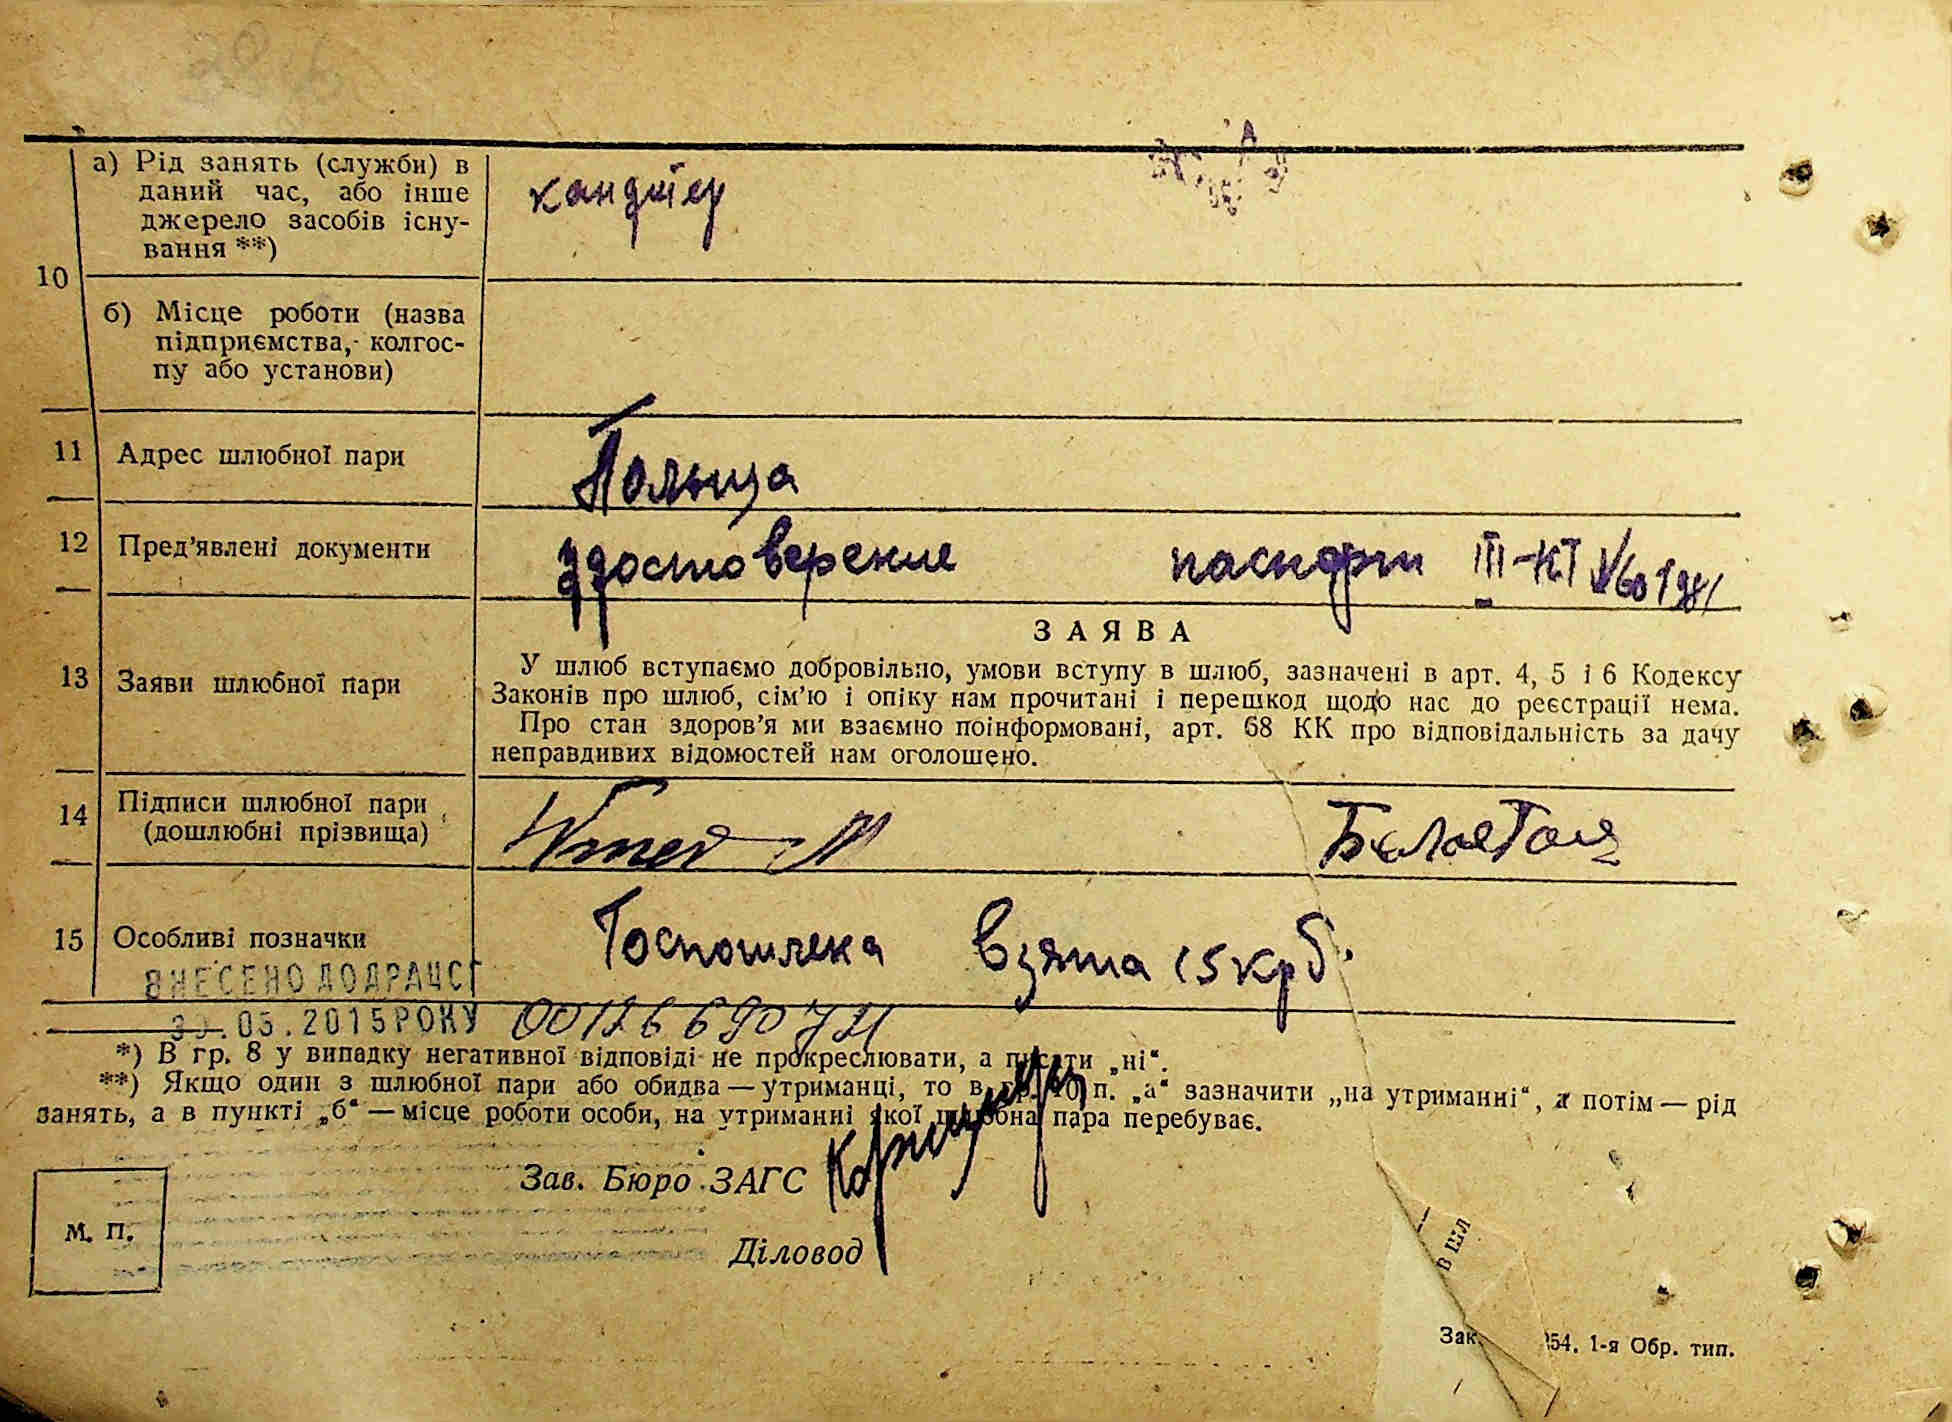 а) Рід занять (служби) в
даний час, або інше
джерело засобів існу-
вання **)
кандитер
10
б) Місце роботи (назва
підприємства, колгос-
пу або установи)
11 Адрес шлюбної пари
Польща
12 Пред'явлені документи
удостоверение паспорт III-КТ
ЗАЯВА
13 Заяви шлюбної пари
У шлюб вступаємо добровільно, умови вступу в шлюб, зазначені в арт. 4, 5 і 6 Кодексу
Законів про шлюб, сім'ю і опіку нам прочитані і перешкод щодо нас до реєстрації нема.
Про стан здоров'я ми взаємно поінформовані, арт. 68 КК про відповідальність за дачу
неправдивих відомостей нам оголошено.
14 Підписи шлюбної пари
(дошлюбні прізвища)
15 Особливі позначки
Госпошлена взята 15 крб.
ВНЕСЕНО ДО ДРАЦСГ
.05.2015 РОКУ 00126690741
*) В гр. 8 у випадку негативної відповіді не прокреслювати, а писати „ні“.
**) Якщо один з шлюбної пари або обидва — утриманці, то в гр. 10 п. „а“ зазначити „на утриманні“, а потім — рід
занять, а в пункті „б“ — місце роботи особи, на утриманні якої шлюбна пара перебуває.
Зав. Бюро ЗАГС
М. П.
Діловод
В ШЛ
Зак. 354. 1-я Обр. тип.